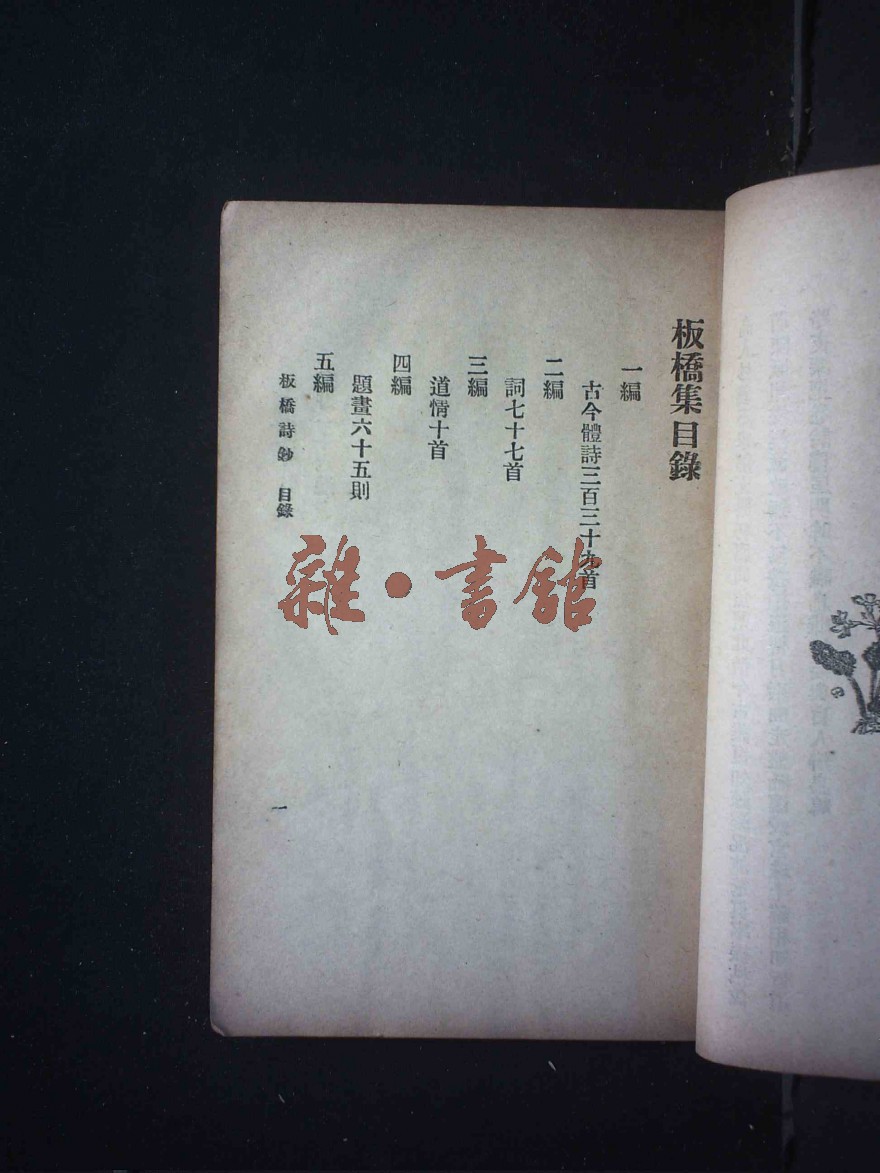 板橋集目錄
一編
古今體詩三百三十九首
二編
詞七十七首
三編
道情十首
四編
題畫六十五則
五編
板橋詩鈔 目錄
一
雜·書館